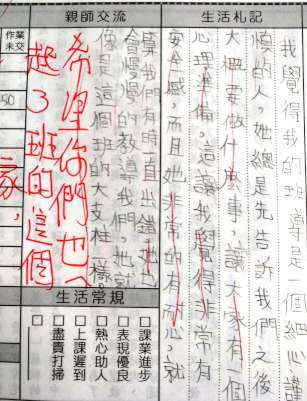 生活札記
我覺得我的導是一個細心謹
慎的人，她總是先告訴我們之後
大概要做什麼事，讓大家有一個
心理準備，這讓我覺得非常有
安全感，而且她非常的有耐心，就
算我們有時直出錯，她也
會慢慢的教導我們，她就
像是這個班的大支柱一樣。
親師交流
希望你們也
起了班的這個
家，
作業
未交
50
生活常規
□課業進步
□表現優良
□熱心助人
□上課遲到
□盡責打掃